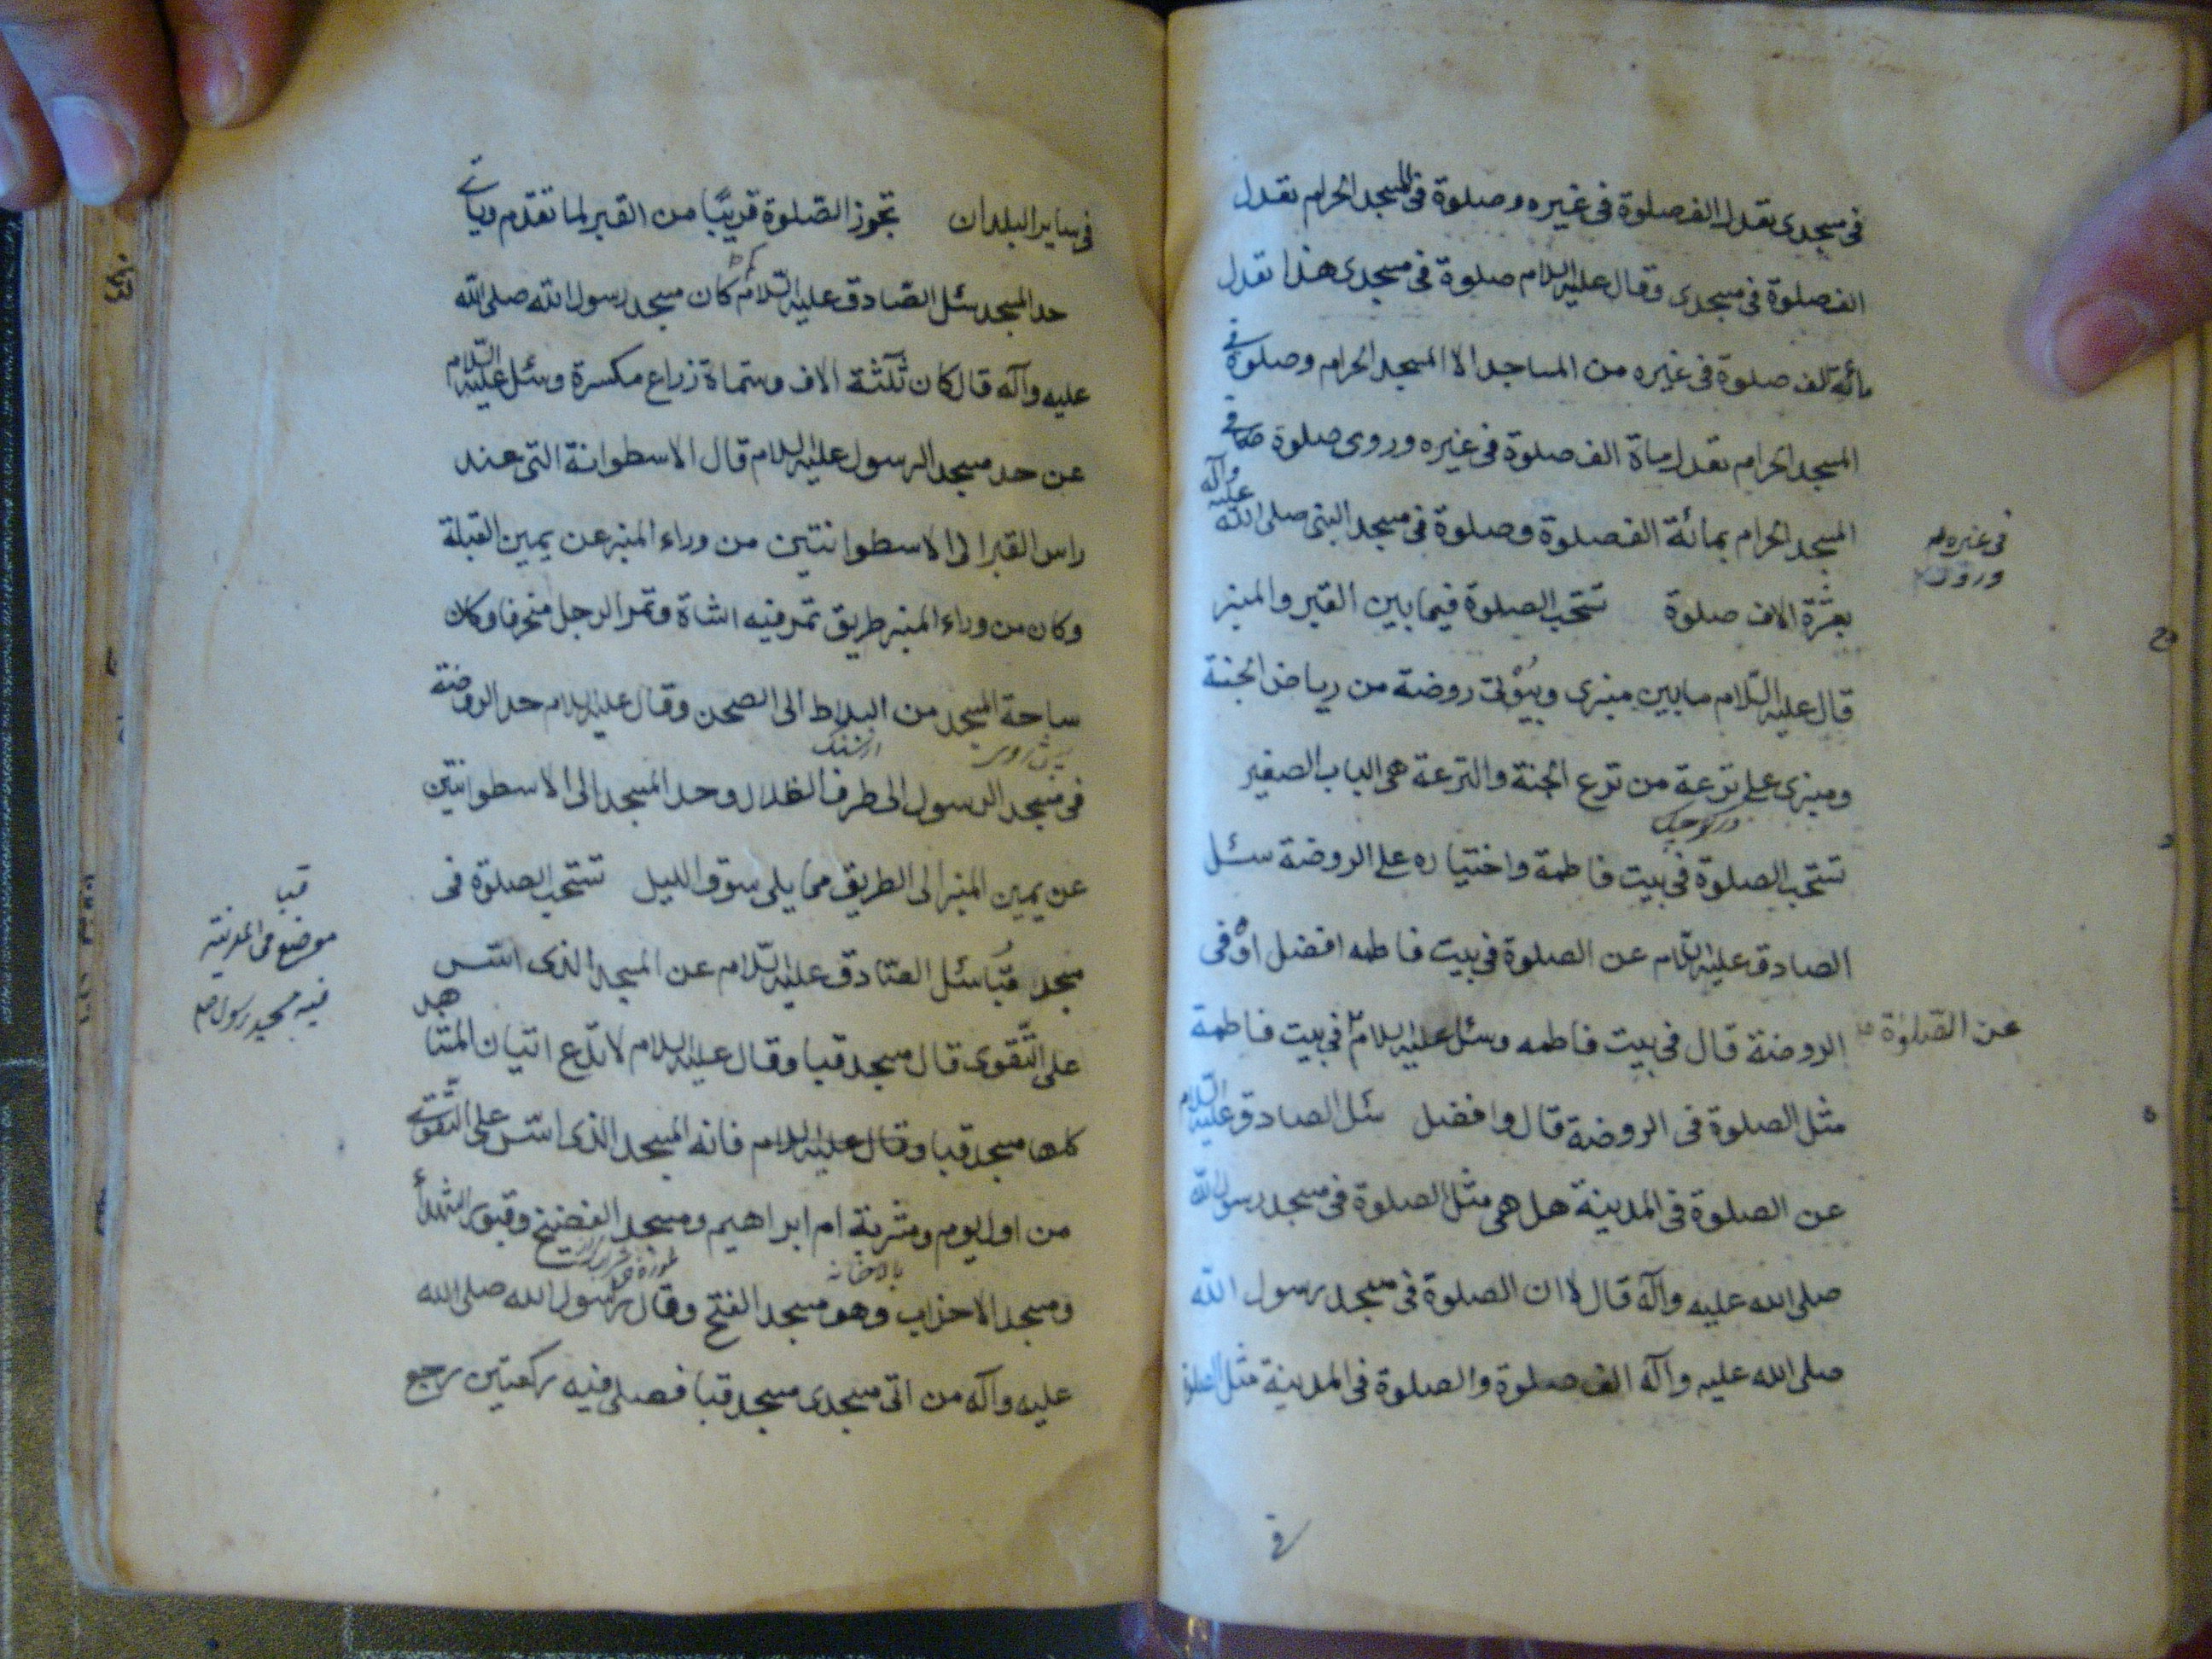 فى مسجدى تعدل الف صلوة فى غيره وصلوة فى المسجد الحرام تعدل
الف صلوة فى مسجدى وقال عليه السلام صلوة فى مسجدى هذا تعدل
مائة الف صلوة فى غيره من المساجد الا المسجد الحرام وصلوة فى
المسجد الحرام تعدل مأة الف صلوة فى غيره وروى صلوة فى
المسجد الحرام بمائة الف صلوة وصلوة فى مسجد النبى صلى الله عليه وآله
فى غيره
بعشرة الاف صلوة تستحب الصلوة فيما بين القبر والمنبر
قال عليه السّلام ما بين منبرى وبيُوْتى روضة من رياض الجنة
ومنبرى على ترعة من ترع الجنة والترعة هى الباب الصغير
در كوچك
تستحب الصلوة فى بيت فاطمة واختياره على الروضة سئل
الصادق عليه السّلام عن الصلوة فى بيت فاطمه افضل اوْ فى
الروضة قال فى بيت فاطمه وسئل عليه السلام فى بيت فاطمة
عن الصّلوة
مثل الصلوة فى الروضة قال وافضل سئل الصادق عليه السّلام
عن الصلوة فى المدينة هل هى مثل الصلوة فى مسجد رسول الله
صلى الله عليه وآله قال لا ان الصلوة فى مسجد رسول الله
صلى الله عليه وآله الف صلوة والصلوة فى المدينة مثل الصلوة
فى
فى ساير البلدان تجوز الصّلوة قريبًا من القبر لما تقدّم وياتى
حد المسجد سئل الصّادق عليه السّلام كم كان مسجد رسول الله صلى الله
عليه وآله قال كان ثلثة الاف وستماة ذراع مكسرة وسئل عليه السّلام
عن حد مسجد الرسول عليه السلام قال الاسطوانة التى عند
راس القبر الى الاسطوانتين من وراء المنبر عن يمين القبلة
وكان من وراء المنبر طريق تمر فيه الشاة وتمر الرجل منحرفا وكان
ساحة المسجد من البلاط الى الصحن وقال عليه السلام حد الروضة
فى مسجد الرسول الى طرف الظلال وحد المسجد الى الاسطوانتين
عن يمين المنبر الى الطريق مما يلى سوق الليل تستحب الصلوة فى
مسجد قُبا سئل الصّادق عليه السّلام عن المسجد الذى اسّس
قبا
موضع فى المدينة
فيه مسجد رسول
على التّقوى قال مسجد قبا وقال عليه السلام لا تدع اتيان المشاهد
كلها مسجد قبا وقال عليه السلام فانه المسجد الذى اسّس على التّقوى
من اول يوم ومشربة ام ابراهيم ومسجد الفضيخ وقبور الشهدأ
بالاخانه
ومسجد الاحزاب وهو مسجد الفتح وقال رسول الله صلى الله
عليه وآله من اتى مسجدى مسجد قبا فصلى فيه ركعتين رجع